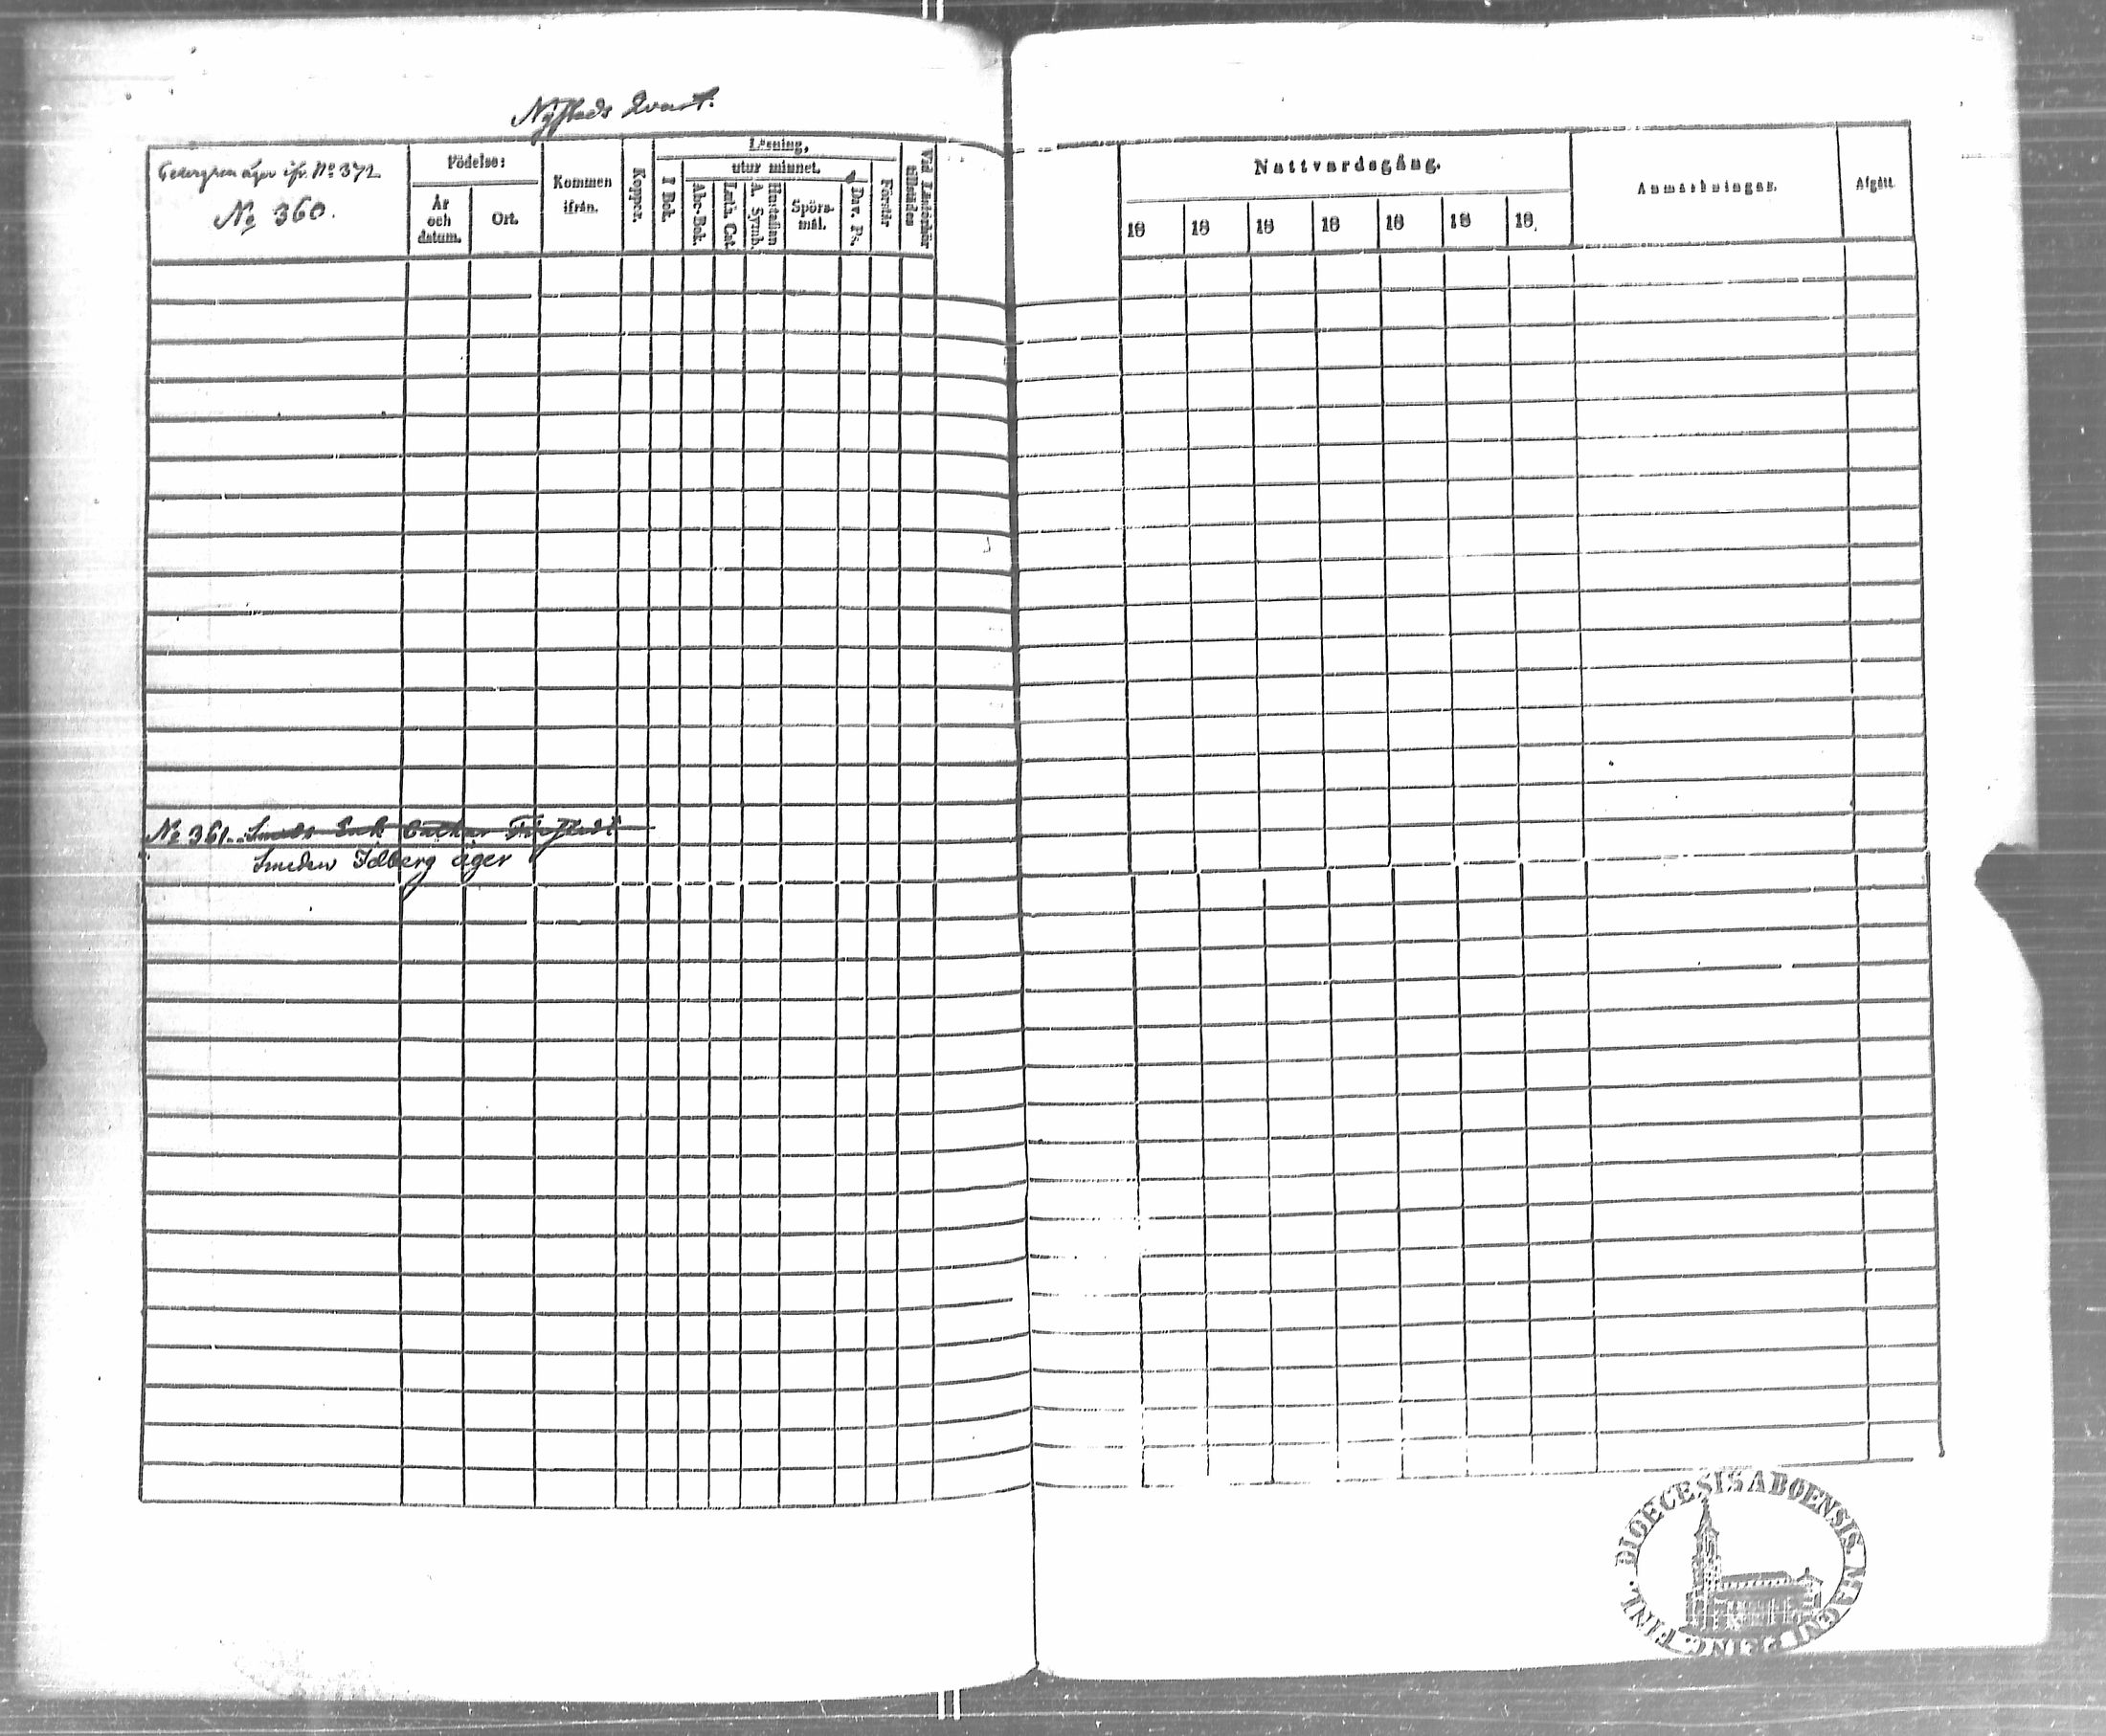 Nystads Qvart.
Cedergren äger ifr. No 372
No 360.
Födelse:
År och datum.
Ort.
Kommen ifrån.
Koppor.
Läsning,
utur minnet.
I Bok.
Abc-Bok.
Luth. Cat.
Hustaflan A. Symb.
Spörsmål.
Dav. Ps.
Förstår
Vid Läsförhör tillstädes
Nattvardsgång.
18 18 18 18 18 18 18.
Anmärkningar.
Afgått.
No 361. Smeds Enk Cathar
Smeden Idberg äger
DIOECESIS ABOENSIS. MAGNI PRINC. FINL.